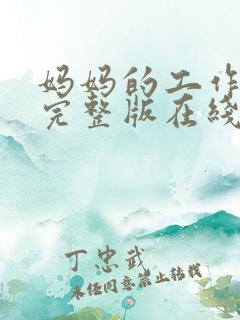 妈妈的工作
完整版在线
丁忠武
未经同意禁止转载